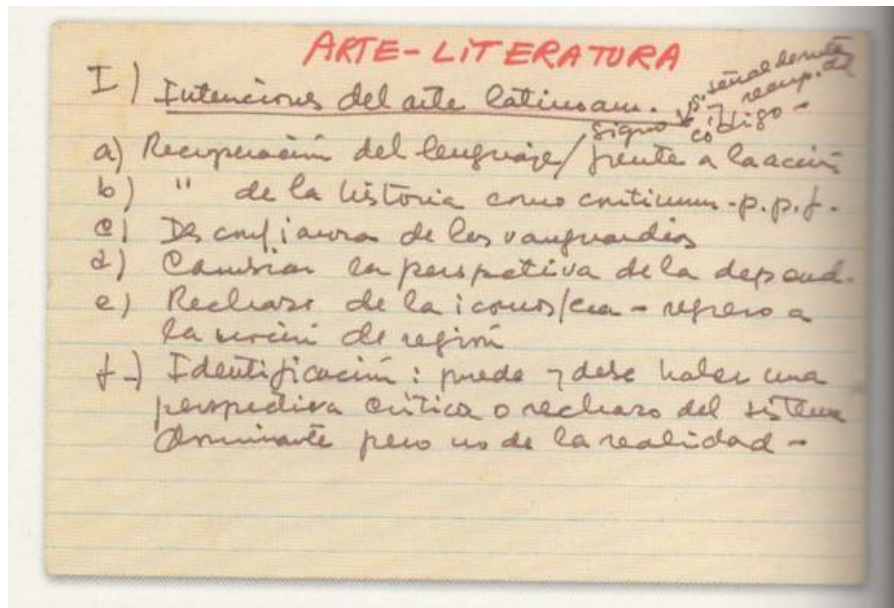 ARTE-LITERATURA
I) Intenciones del arte latinoam.
signo código -
a) Recuperación del lenguaje/frente a la acción
b) " de la historia como continuum-p.p.f.
c) Desconfianza de las vanguardias
d) Cambiar la perspectiva de la depend.
e) Rechazo de la - regreso a
la noción de región
f-) Identificación: puede y debe haber una
perspectiva crítica o rechazo del sistema
dominante pero no de la realidad -